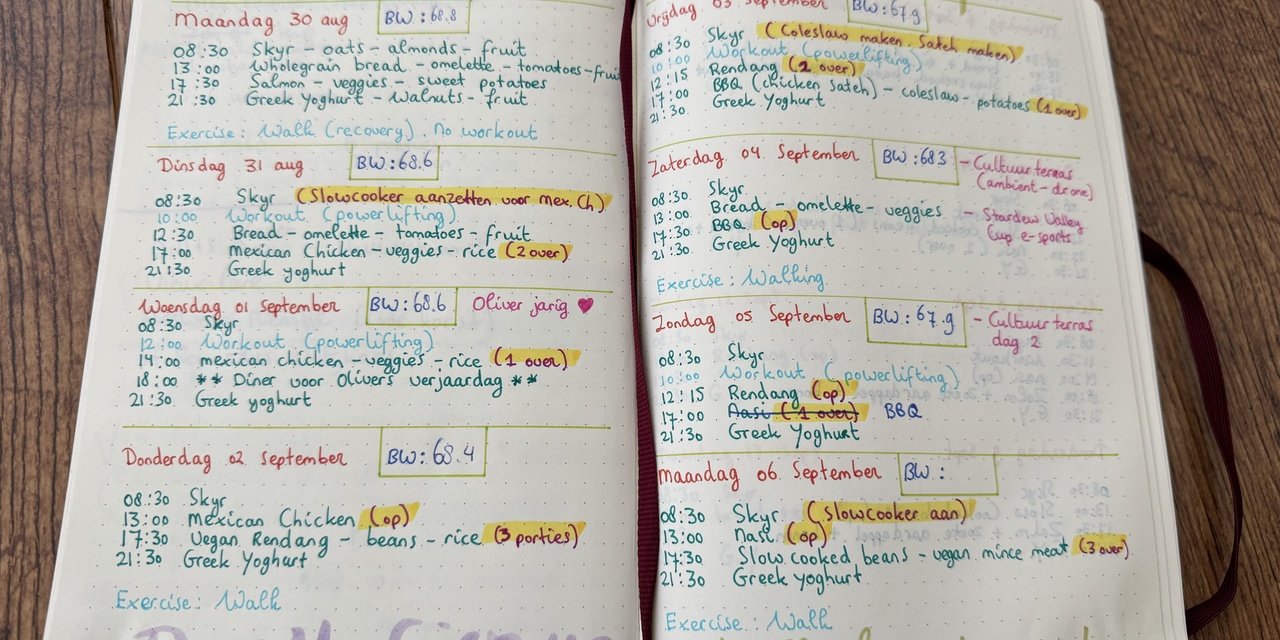 Maandag 30 aug BW: 68.8
08:30 Skyr - oats - almonds - fruit
13:00 Wholegrain bread - omelette - tomatoes - fruit
17:30 Salmon - veggies - sweet potatoes
21:30 Greek Yoghurt - walnuts - fruit
Exercise: Walk (recovery). No workout
Dinsdag 31 aug BW: 68.6
08:30 Skyr (Slowcooker aanzetten voor mex. Ch)
10:00 Workout (powerlifting)
12:30 Bread - omelette - tomatoes - fruit
17:00 Mexican Chicken - veggies - rice (2 over)
21:30 Greek yoghurt
Woensdag 01 september BW: 68.6 Oliver jarig ♥
08:30 Skyr
12:00 Workout (powerlifting)
14:00 mexican chicken - veggies - rice (1 over)
18:00 ** Diner voor Olivers verjaardag **
21:30 Greek yoghurt
Donderdag 02 september BW: 68.4
08:30 Skyr
13:00 Mexican Chicken (op)
17:30 Vegan Rendang - beans - rice (3 porties)
21:30 Greek Yoghurt
Exercise: Walk
Vrijdag 03 September BW: 67.9
08:30 Skyr (Coleslaw maken. Sateh maken)
10:00 Workout (powerlifting)
12:15 Rendang (1 over)
17:00 BBQ (chicken sateh) - coleslaw - potatoes (1 over)
21:30 Greek Yoghurt
Zaterdag 04 September BW: 683 - Cultuur terras
(ambient - drone)
08:30 Skyr
13:00 Bread - omelette - veggies - Stardew Valley
17:30 BBQ (op) Cup e-sports
21:30 Greek Yoghurt
Exercise: Walking
Zondag 05 September BW: 67.9 - Cultuur terras
dag 2
08:30 Skyr
10:00 Workout (powerlifting)
12:15 Rendang (op)
17:00 Nasi (1 over) BBQ
21:30 Greek Yoghurt
Maandag 06 September BW:
08:30 Skyr (Slowcooker aan)
13:00 Nasi (op)
17:30 Slow cooked beans - vegan mince meat (3 over)
21:30 Greek Yoghurt
Exercise: Walk